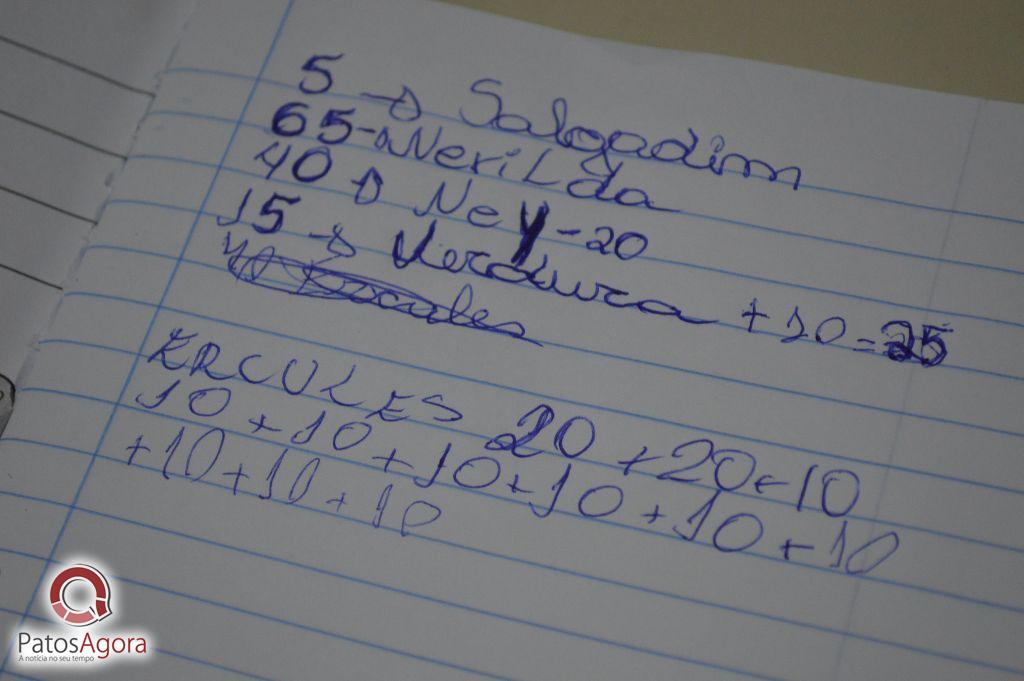 5 → Salgadim
65 → Nerilda
40 → Ney - 20
15 → Verdura + 10 = 25
40
ERCULES 20 + 20 + 10
10 + 10 + 10 + 10 + 10 + 10
+ 10 + 10 + 10
PatosAgora
A notícia no seu tempo